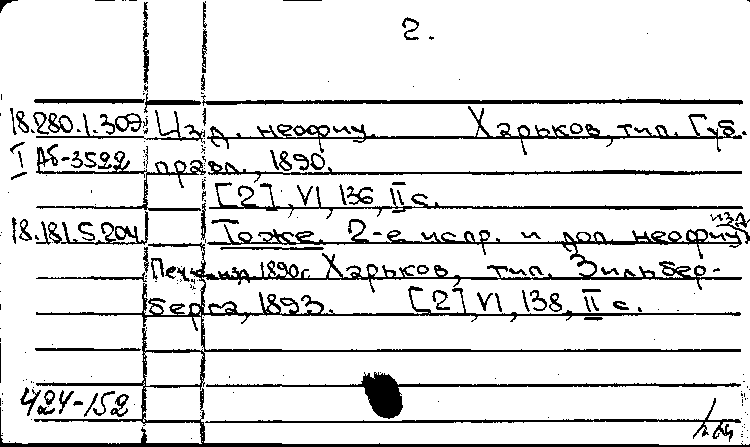 2.
18.280.1.309 Изд. неофиц. Харьков, тип. Губ.
I Аб-3522 правл., 1890.
[2], VI, 136, II с.
18.181.5.204 То же. 2-е испр. и доп. неофиц. изд.
Печ. изд. 1890 г. Харьков, тип. Зильбер-
берга, 1893. [2], VI, 138, II с.
424-152